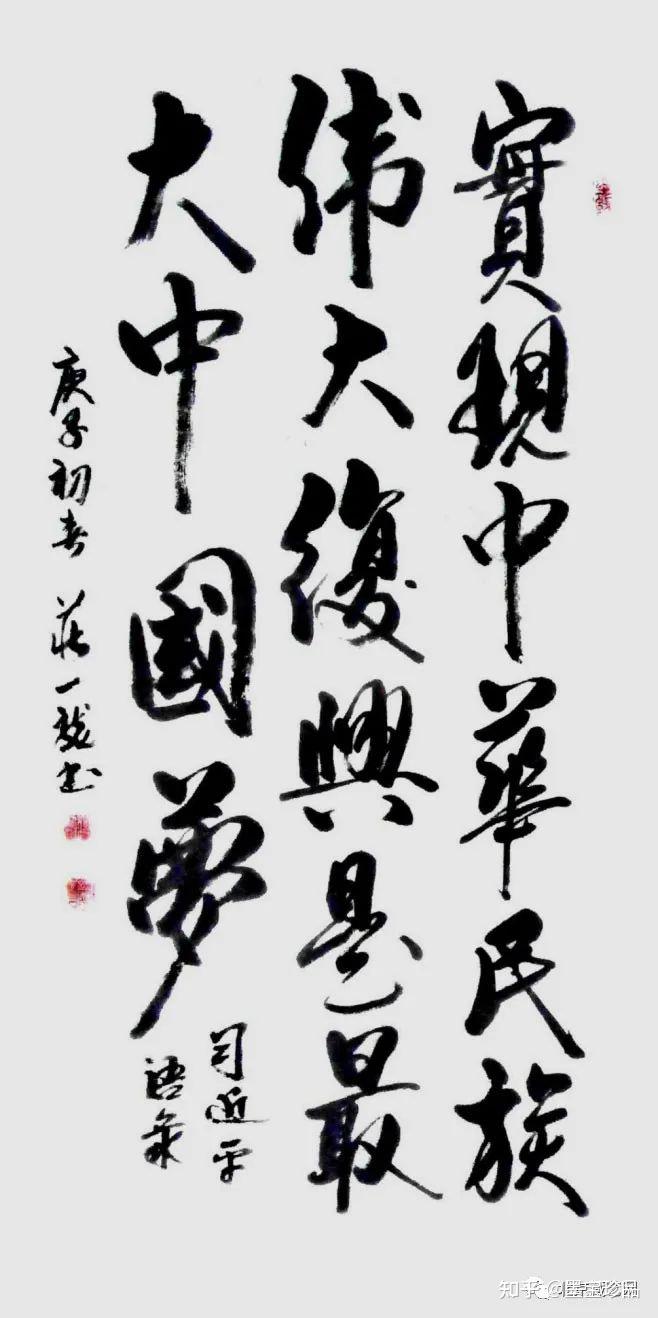 實現中華民族
伟大復興是最
大中國夢
习近平
語录
庚子初春 莊一龍书
知乎